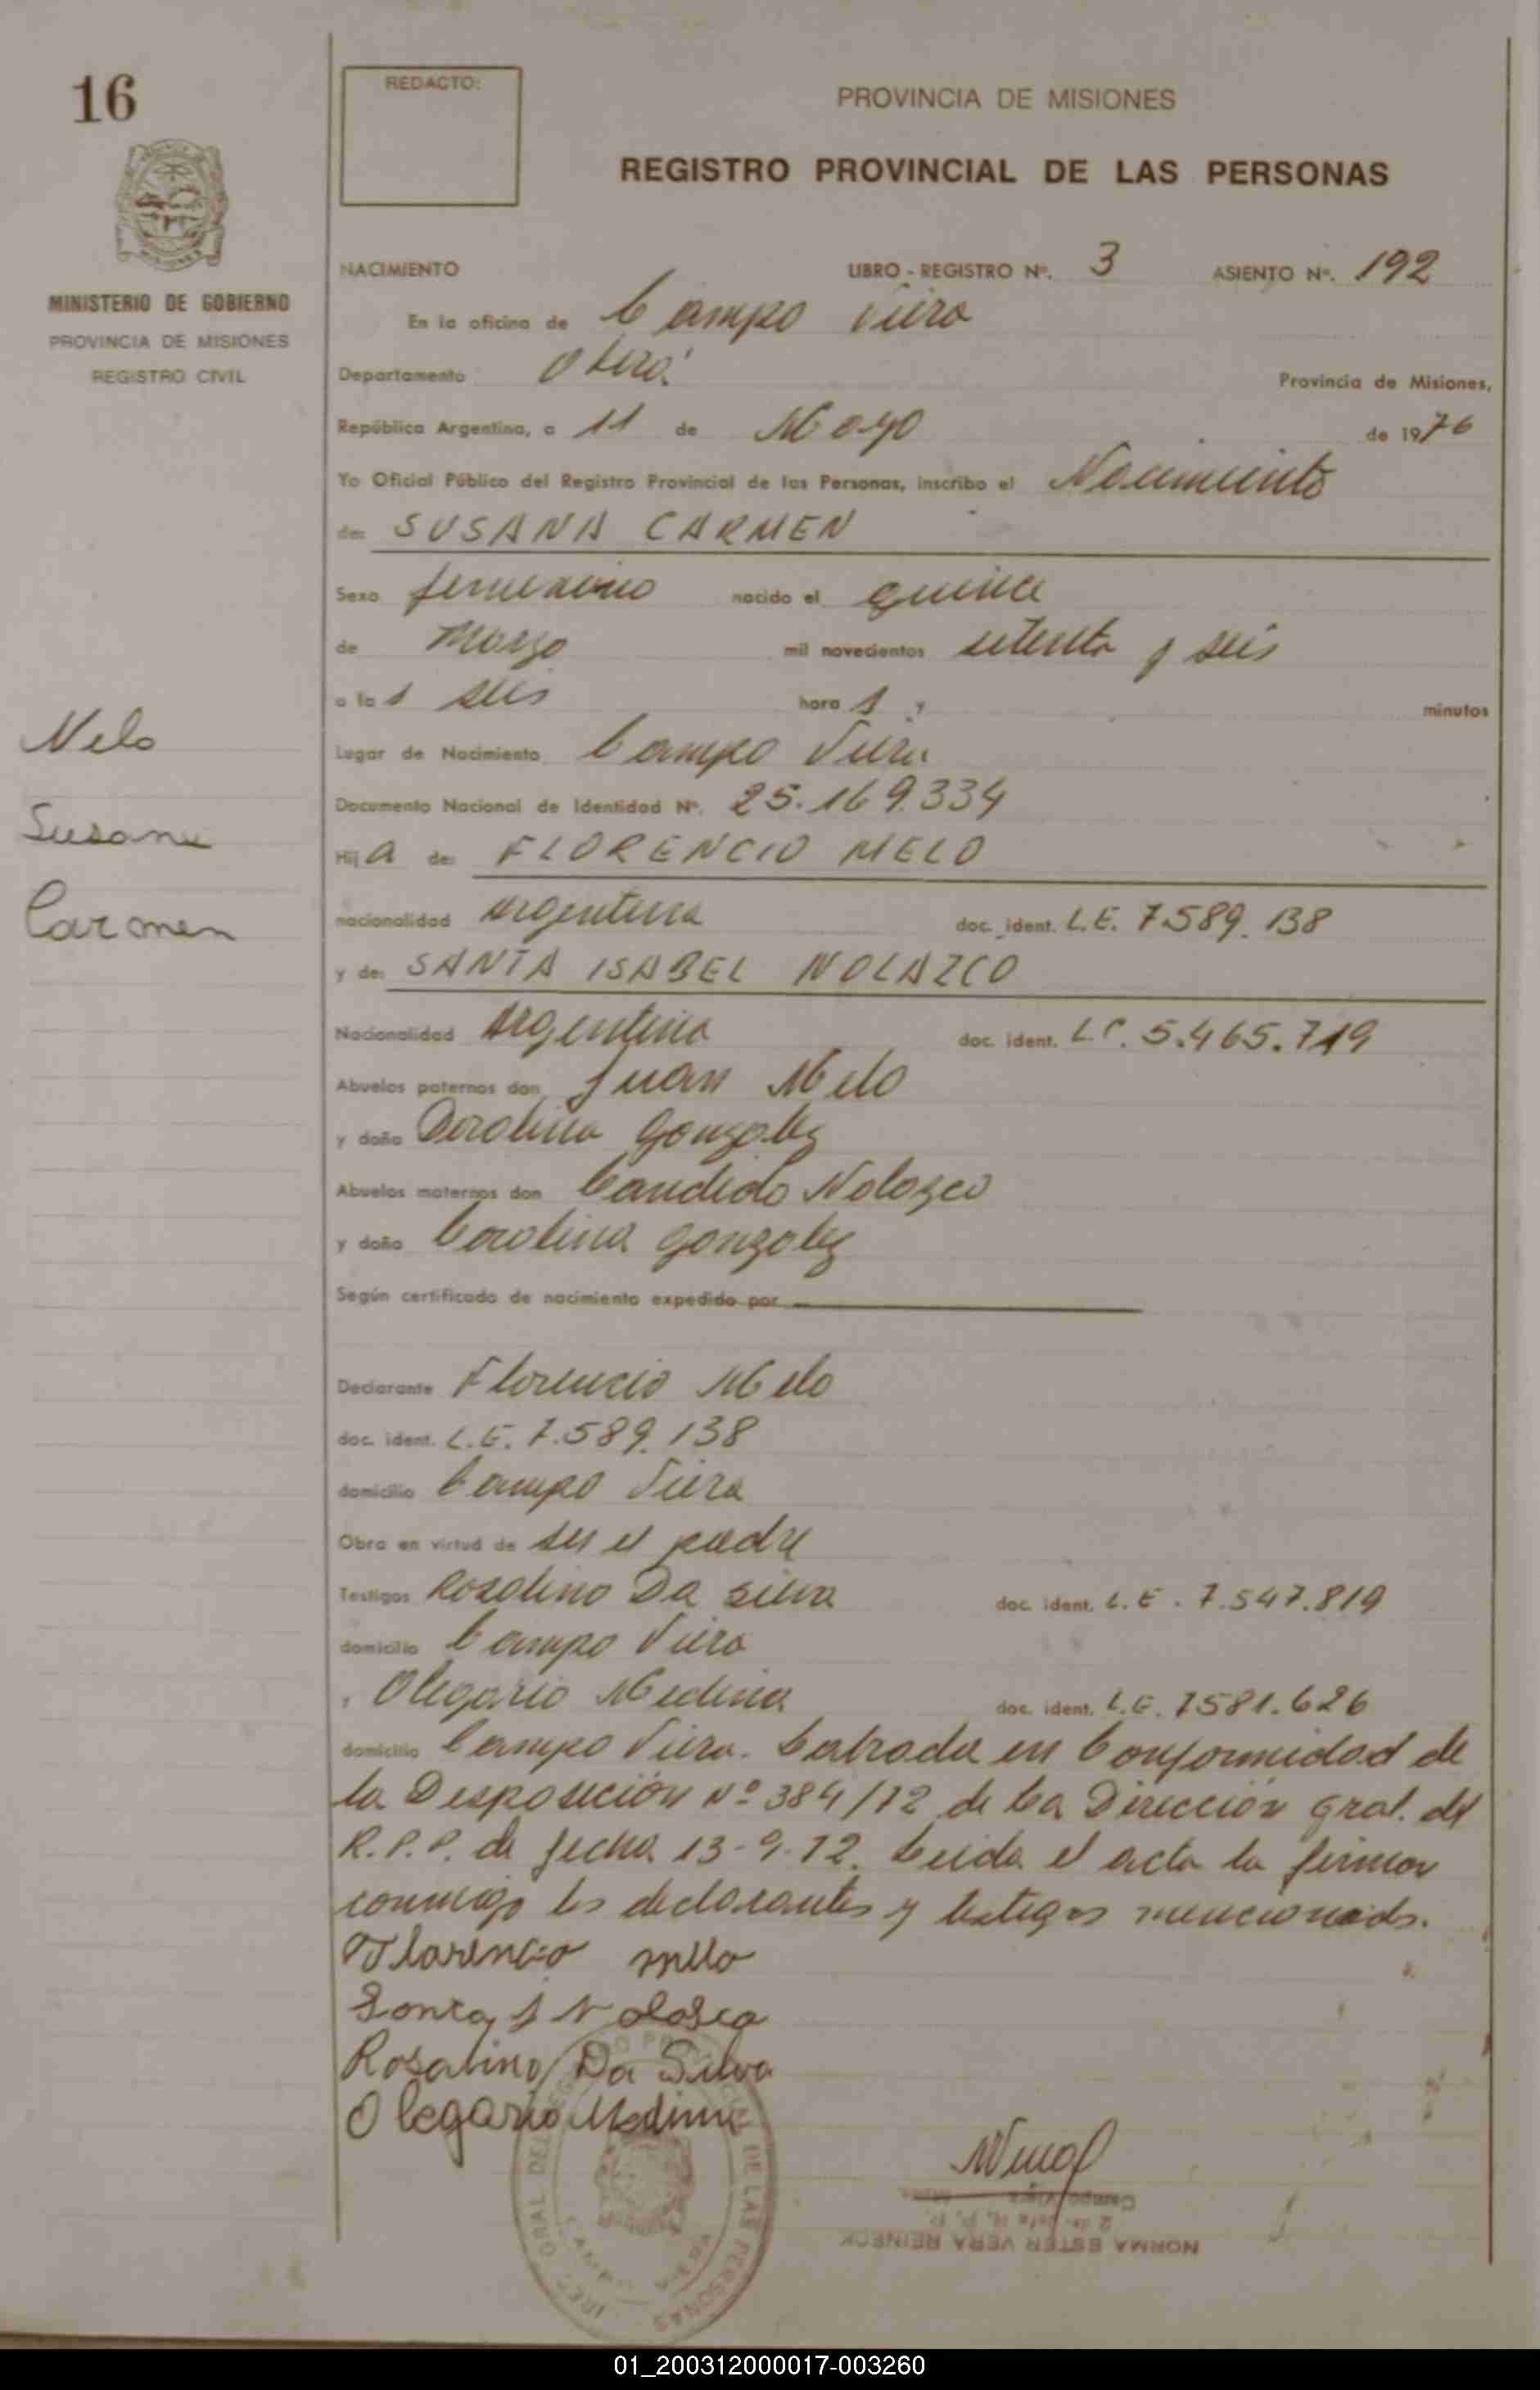 16
REDACTO:
PROVINCIA DE MISIONES
REGISTRO PROVINCIAL DE LAS PERSONAS
MINISTERIO DE GOBIERNO
PROVINCIA DE MISIONES
REGISTRO CIVIL
NACIMIENTO LIBRO - REGISTRO Nº. 3 ASIENTO Nº. 192
En la oficina de Campo Viera
Departamento Oberá Provincia de Misiones,
República Argentina, a 11 de Mayo de 1976
Yo Oficial Público del Registro Provincial de las Personas, inscribo el Nacimiento
de: SUSANA CARMEN
Sexo femenino nacido el quince
de Marzo mil novecientos setenta y seis
a las seis horas y minutos
Lugar de Nacimiento Campo Viera
Documento Nacional de Identidad Nº. 25.169.334
Hija de: FLORENCIO MELO
nacionalidad argentina doc. ident. L.E. 7.589.138
y de: SANTA ISABEL NOLAZCO
Nacionalidad Argentina doc. ident. L.C. 5.465.719
Abuelos paternos don Juan Melo
y doña Carolina Gonzalez
Abuelos maternos don Candido Nolazco
y doña Carolina Gonzalez
Según certificado de nacimiento expedido por
Declarante Florencio Melo
doc. ident. L.E. 7.589.138
domicilio Campo Viera
Obra en virtud de ser el padre
Testigos Rosalino Da Silva doc. ident. L.E. 7.547.819
domicilio Campo Viera
y Olegario Medina doc. ident. L.E. 7581.626
domicilio Campo Viera. Labrada en Conformidad de
la Disposición Nº 384/72 de la Dirección Gral. del
R.P.P. de fecha 13-9-72. Leida el acta la firman
conmigo los declarantes y testigos mencionados.
Florencio mello
Santa I Nolasco
Rosalino Da Silva
Olegario Medina
Melo
Susana
Carmen
NORMA ESTER VERA REINECK
Campo Viera
DE LAS PERSONAS
01_200312000017-003260